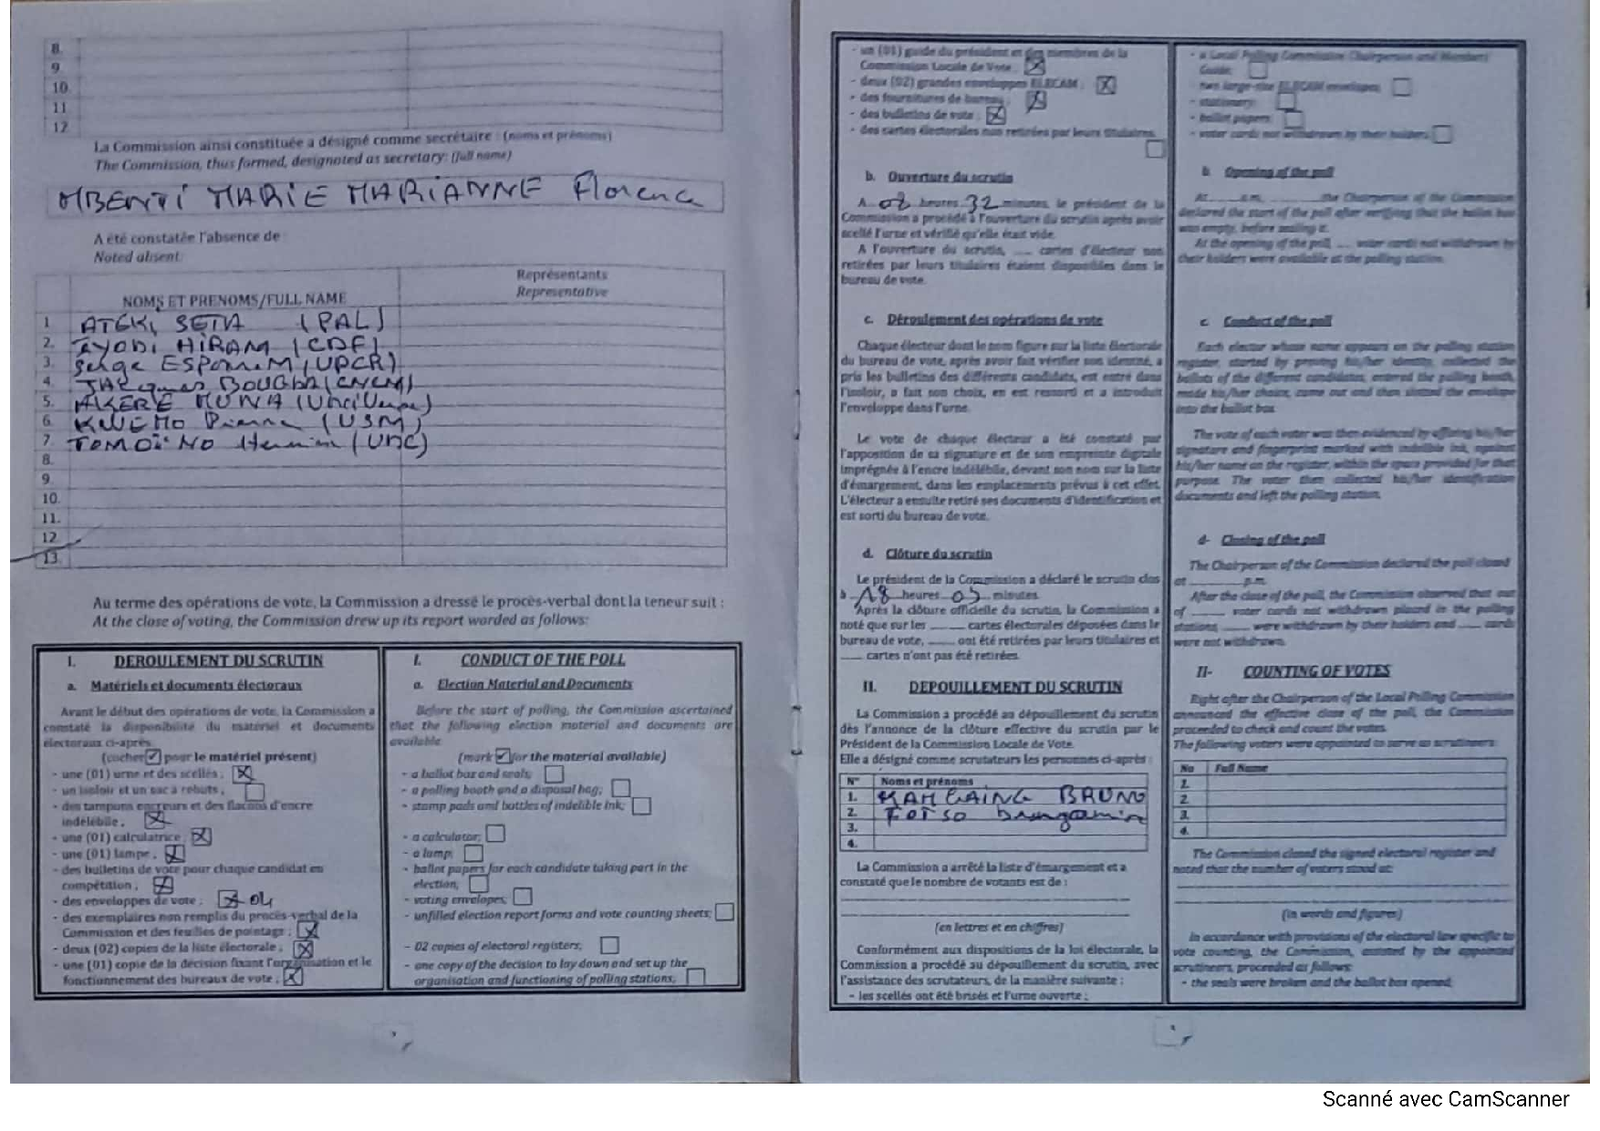 8.
9.
10.
11
12
La Commission ainsi constituée a désigné comme secrétaire : (noms et prénoms)
The Commission, thus formed, designated as secretary: (full name)
MBENTI MARIE MARIANNE Florence
A été constatée l'absence de
Noted absent:
NOMS ET PRENOMS/FULL NAME
Représentants
Representative
1 ATEKI SETA (PAL)
2. HIRAM (CDF)
3. Serge ESPOIR M (UPCR)
4. JACques BOUGHA (CNCM)
5. AKERE MUNA (Univers)
6. KWEMO Pierre (USM)
7. TOMOINO (UDC)
8.
9.
10.
11.
12.
13.
Au terme des opérations de vote, la Commission a dressé le procès-verbal dont la teneur suit :
At the close of voting, the Commission drew up its report worded as follows:
I. DEROULEMENT DU SCRUTIN
a. Matériels et documents électoraux
Avant le début des opérations de vote, la Commission a
constaté la disponibilité du matériel et documents
électoraux ci-après
(cocher ✓ pour le matériel présent)
- une (01) urne et des scellés ;
- un isoloir et un sac à rebuts ;
- des tampons encreurs et des flacons d'encre
indélébile ;
- une (01) calculatrice ;
- une (01) lampe ;
- des bulletins de vote pour chaque candidat en
compétition ;
- des enveloppes de vote ;
- des exemplaires non remplis du procès-verbal de la
Commission et des feuilles de pointage ;
- deux (02) copies de la liste électorale ;
- une (01) copie de la décision fixant l'organisation et le
fonctionnement des bureaux de vote ;
I. CONDUCT OF THE POLL
a. Election Material and Documents
Before the start of polling, the Commission ascertained
that the following election material and documents are
available
(mark ✓ for the material available)
- a ballot box and seals;
- a polling booth and a disposal bag;
- stamp pads and bottles of indelible ink;
- a calculator;
- a lamp;
- ballot papers for each candidate taking part in the
election;
- voting envelopes;
- unfilled election report forms and vote counting sheets;
- 02 copies of electoral registers;
- one copy of the decision to lay down and set up the
organisation and functioning of polling stations;
- un (01) guide du président et des membres de la
Commission Locale de Vote ;
- deux (02) grandes enveloppes ELECAM ;
- des fournitures de bureau ;
- des bulletins de vote ;
- des cartes électorales non retirées par leurs titulaires.
b. Ouverture du scrutin
A 08 heures 32 minutes, le président de la
Commission a procédé à l'ouverture du scrutin après avoir
scellé l'urne et vérifié qu'elle était vide.
A l'ouverture du scrutin, ..... cartes d'électeur non
retirées par leurs titulaires étaient disponibles dans le
bureau de vote.
c. Déroulement des opérations de vote
Chaque électeur dont le nom figure sur la liste électorale
du bureau de vote, après avoir fait vérifier son identité, a
pris les bulletins des différents candidats, est entré dans
l'isoloir, a fait son choix, en est ressorti et a introduit
l'enveloppe dans l'urne.
Le vote de chaque électeur a été constaté par
l'apposition de sa signature et de son empreinte digitale
imprégnée à l'encre indélébile, devant son nom sur la liste
d'émargement, dans les emplacements prévus à cet effet.
L'électeur a ensuite retiré ses documents d'identification et
est sorti du bureau de vote.
d. Clôture du scrutin
Le président de la Commission a déclaré le scrutin clos
à 18 heures 05 minutes.
Après la clôture officielle du scrutin, la Commission a
noté que sur les ...... cartes électorales déposées dans le
bureau de vote, ...... ont été retirées par leurs titulaires et
...... cartes n'ont pas été retirées.
II. DEPOUILLEMENT DU SCRUTIN
La Commission a procédé au dépouillement du scrutin
dès l'annonce de la clôture effective du scrutin par le
Président de la Commission Locale de Vote.
Elle a désigné comme scrutateurs les personnes ci-après :
N° Noms et prénoms
1. KAMGAING BRUNO
2. FOTSO
3.
4.
La Commission a arrêté la liste d'émargement et a
constaté que le nombre de votants est de :
(en lettres et en chiffres)
Conformément aux dispositions de la loi électorale, la
Commission a procédé au dépouillement du scrutin, avec
l'assistance des scrutateurs, de la manière suivante :
- les scellés ont été brisés et l'urne ouverte ;
- a Local Polling Commission Chairperson and Members
Guide;
- two large-size ELECAM envelopes;
- stationery;
- ballot papers;
- voter cards not withdrawn by their holders.
b. Opening of the poll
At ...... a.m, ...... the Chairperson of the Commission
declared the start of the poll after verifying that the ballot box
was empty, before sealing it.
At the opening of the poll, .... voter cards not withdrawn by
their holders were available at the polling station.
c. Conduct of the poll
Each elector whose name appears on the polling station
register, started by proving his/her identity, collected the
ballots of the different candidates, entered the polling booth,
made his/her choice, came out and then slotted the envelope
into the ballot box.
The vote of each voter was then evidenced by affixing his/her
signature and fingerprint marked with indelible ink, against
his/her name on the register, within the space provided for that
purpose. The voter then collected his/her identification
documents and left the polling station.
d- Closing of the poll
The Chairperson of the Commission declared the poll closed
at ............ p.m.
After the close of the poll, the Commission observed that out
of ...... voter cards not withdrawn placed in the polling
stations, ...... were withdrawn by their holders and ..... cards
were not withdrawn.
II- COUNTING OF VOTES
Right after the Chairperson of the Local Polling Commission
announced the effective close of the poll, the Commission
proceeded to check and count the votes.
The following voters were appointed to serve as scrutineers:
No Full Name
1.
2.
3.
4.
The Commission closed the signed electoral register and
noted that the number of voters stood at:
(in words and figures)
In accordance with provisions of the electoral law specific to
vote counting, the Commission, assisted by the appointed
scrutineers, proceeded as follows:
- the seals were broken and the ballot box opened;
Scanné avec CamScanner